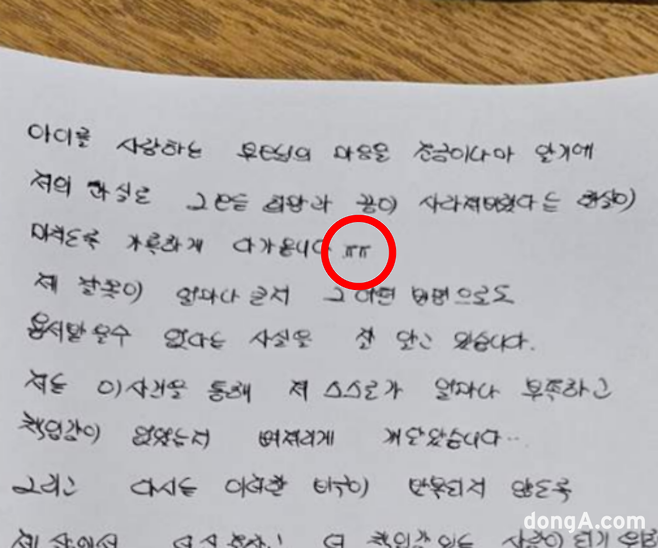 아이를 사랑하는 부모님의 마음을 조금이나마 알기에
저의 과실로 그 모든 희망과 꿈이 사라져버렸다는 현실이
미치도록 가혹하게 다가옵니다 ㅠㅠ
제 잘못이 얼마나 큰지 그 어떤 변명으로도
용서받을수 없다는 사실을 잘 알고 있습니다.
저는 이 사건을 통해 제 스스로가 얼마나 부족하고
책임감이 없었는지 뼈저리게 깨달았습니다...
그리고 다시는 이러한 비극이 반복되지 않도록
제 책임감 있는 사람이 되기 위해
dongA.com